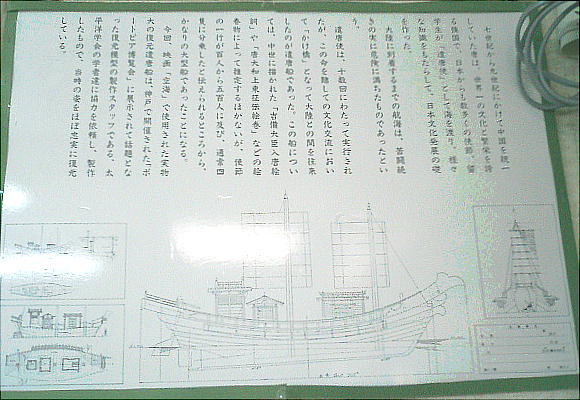 七世紀から九世紀にかけて中国を統一
していた唐は、世界一の文化と繁栄を誇
る強国で、日本からも数多くの使節、留
学生が「遣唐使」として海を渡り、様々
な知識をもたらして、日本文化発展の礎
を作った。
大陸に到着するまでの航海は、苦闘続
きの実に危険に満ちたものであったとい
う。
遣唐使は、十数回にわたって実行され
たが、この命を賭しての文化交流におい
て「かけ橋」となって大陸との間を往来
したのが遣唐船であった。この船につい
ては、中世に描かれた「吉備大臣入唐絵
詞」や「唐大和上東征伝絵巻」などの絵
巻物によって推定するほかないが、使節
の一行が百人から五百人に及び、通常四
隻に分乗したと伝えられるところから、
かなりの大型船であったことになる。
今回、映画「空海」で使用された実物
大の復元遣唐船は、神戸で開催された「ポ
ートピア博覧会」に展示されて話題とな
った復元模型の製作スタッフである、太
平洋学会の学者達に協力を依頼し、製作
したもので、当時の姿をほぼ忠実に復元
している。